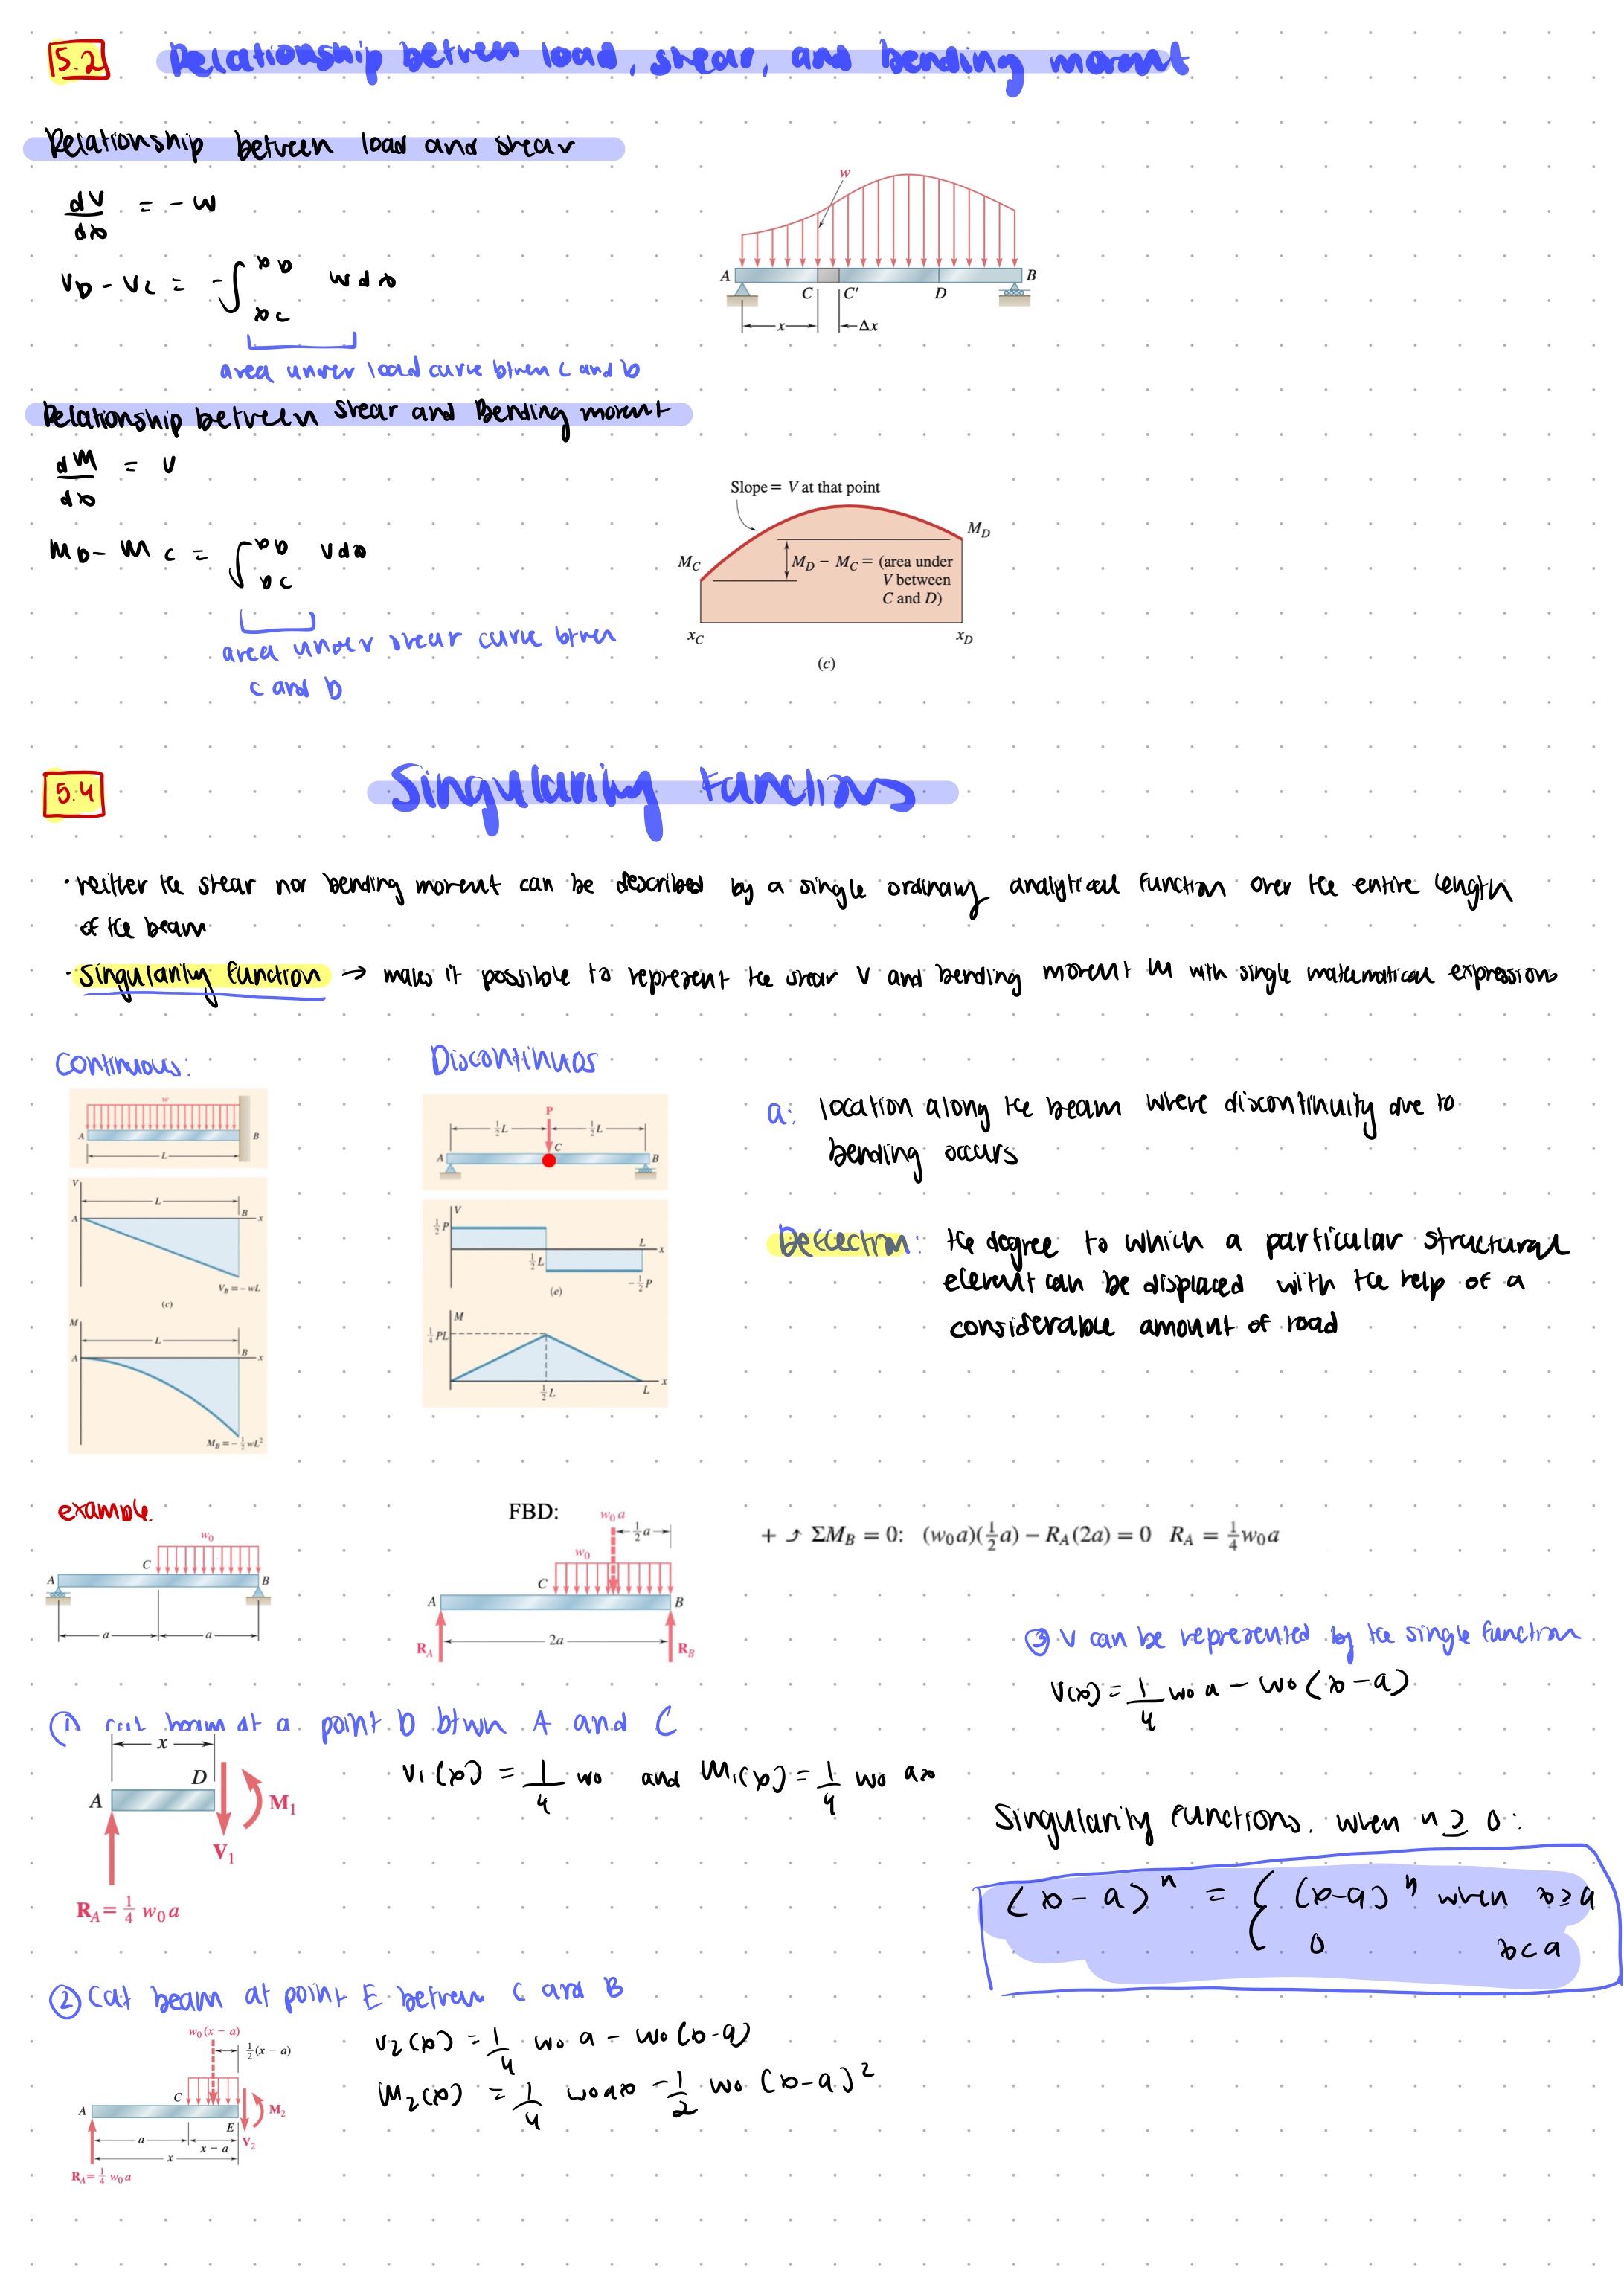 5.2 Relationship betven load, shear, and bending moment
Relationship between load and shear
dV/dx = - w
w
A B
C C' D
x Δx
VD - VC = -∫ xD xC w dx
area under load curve btwn C and D
Relationship between shear and Bending moment
dM/dx = V
Slope = V at that point
MD
MC
MD − MC = (area under
V between
C and D)
xC xD
(c)
MD - MC = ∫ xD xC V dx
area under shear curve btwn
C and D
5.4 Singularity functions
· neither the shear nor bending moment can be described by a single ordinary analytical function over the entire length
of the beam
· Singularity function → makes it possible to represent the shear V and bending moment M with single mathematical expressions
Continuous:
w
A B
L
V
L
A B x
VB = − wL
(c)
M
L
A B x
MB = − ½ wL²
Discontinuos
P
½L ½L
A C B
V
½P
½L L x
−½P
(e)
M
¼PL
½L L x
a: location along the beam where discontinuity due to
bending occurs
Deflection: the degree to which a particular structural
element can be displaced with the help of a
considerable amount of road
example.
w0
C
A B
a a
FBD:
w0 a
½a
w0
C
A B
2a
RA RB
+ ⤴ ΣMB = 0: (w0a)(½a) − RA(2a) = 0 RA = ¼w0a
③ V can be represented by the single function
V(x) = 1/4 w0 a - w0 ⟨x - a⟩
① cut beam at a point D btwn A and C
x
D
A
M1
V1
RA = ¼ w0 a
V1(x) = 1/4 w0 and M1(x) = 1/4 w0 ax
Singularity functions, when n ≥ 0:
⟨x - a⟩ⁿ = { (x-a)ⁿ when x ≥ a
0 x < a
② Cut beam at point E betwen C and B
w0 (x − a)
½(x − a)
C
A
M2
E
V2
a x − a
x
RA = ¼ w0 a
V2(x) = 1/4 w0 a - w0(x-a)
M2(x) = 1/4 w0 ax - 1/2 w0 (x-a)²